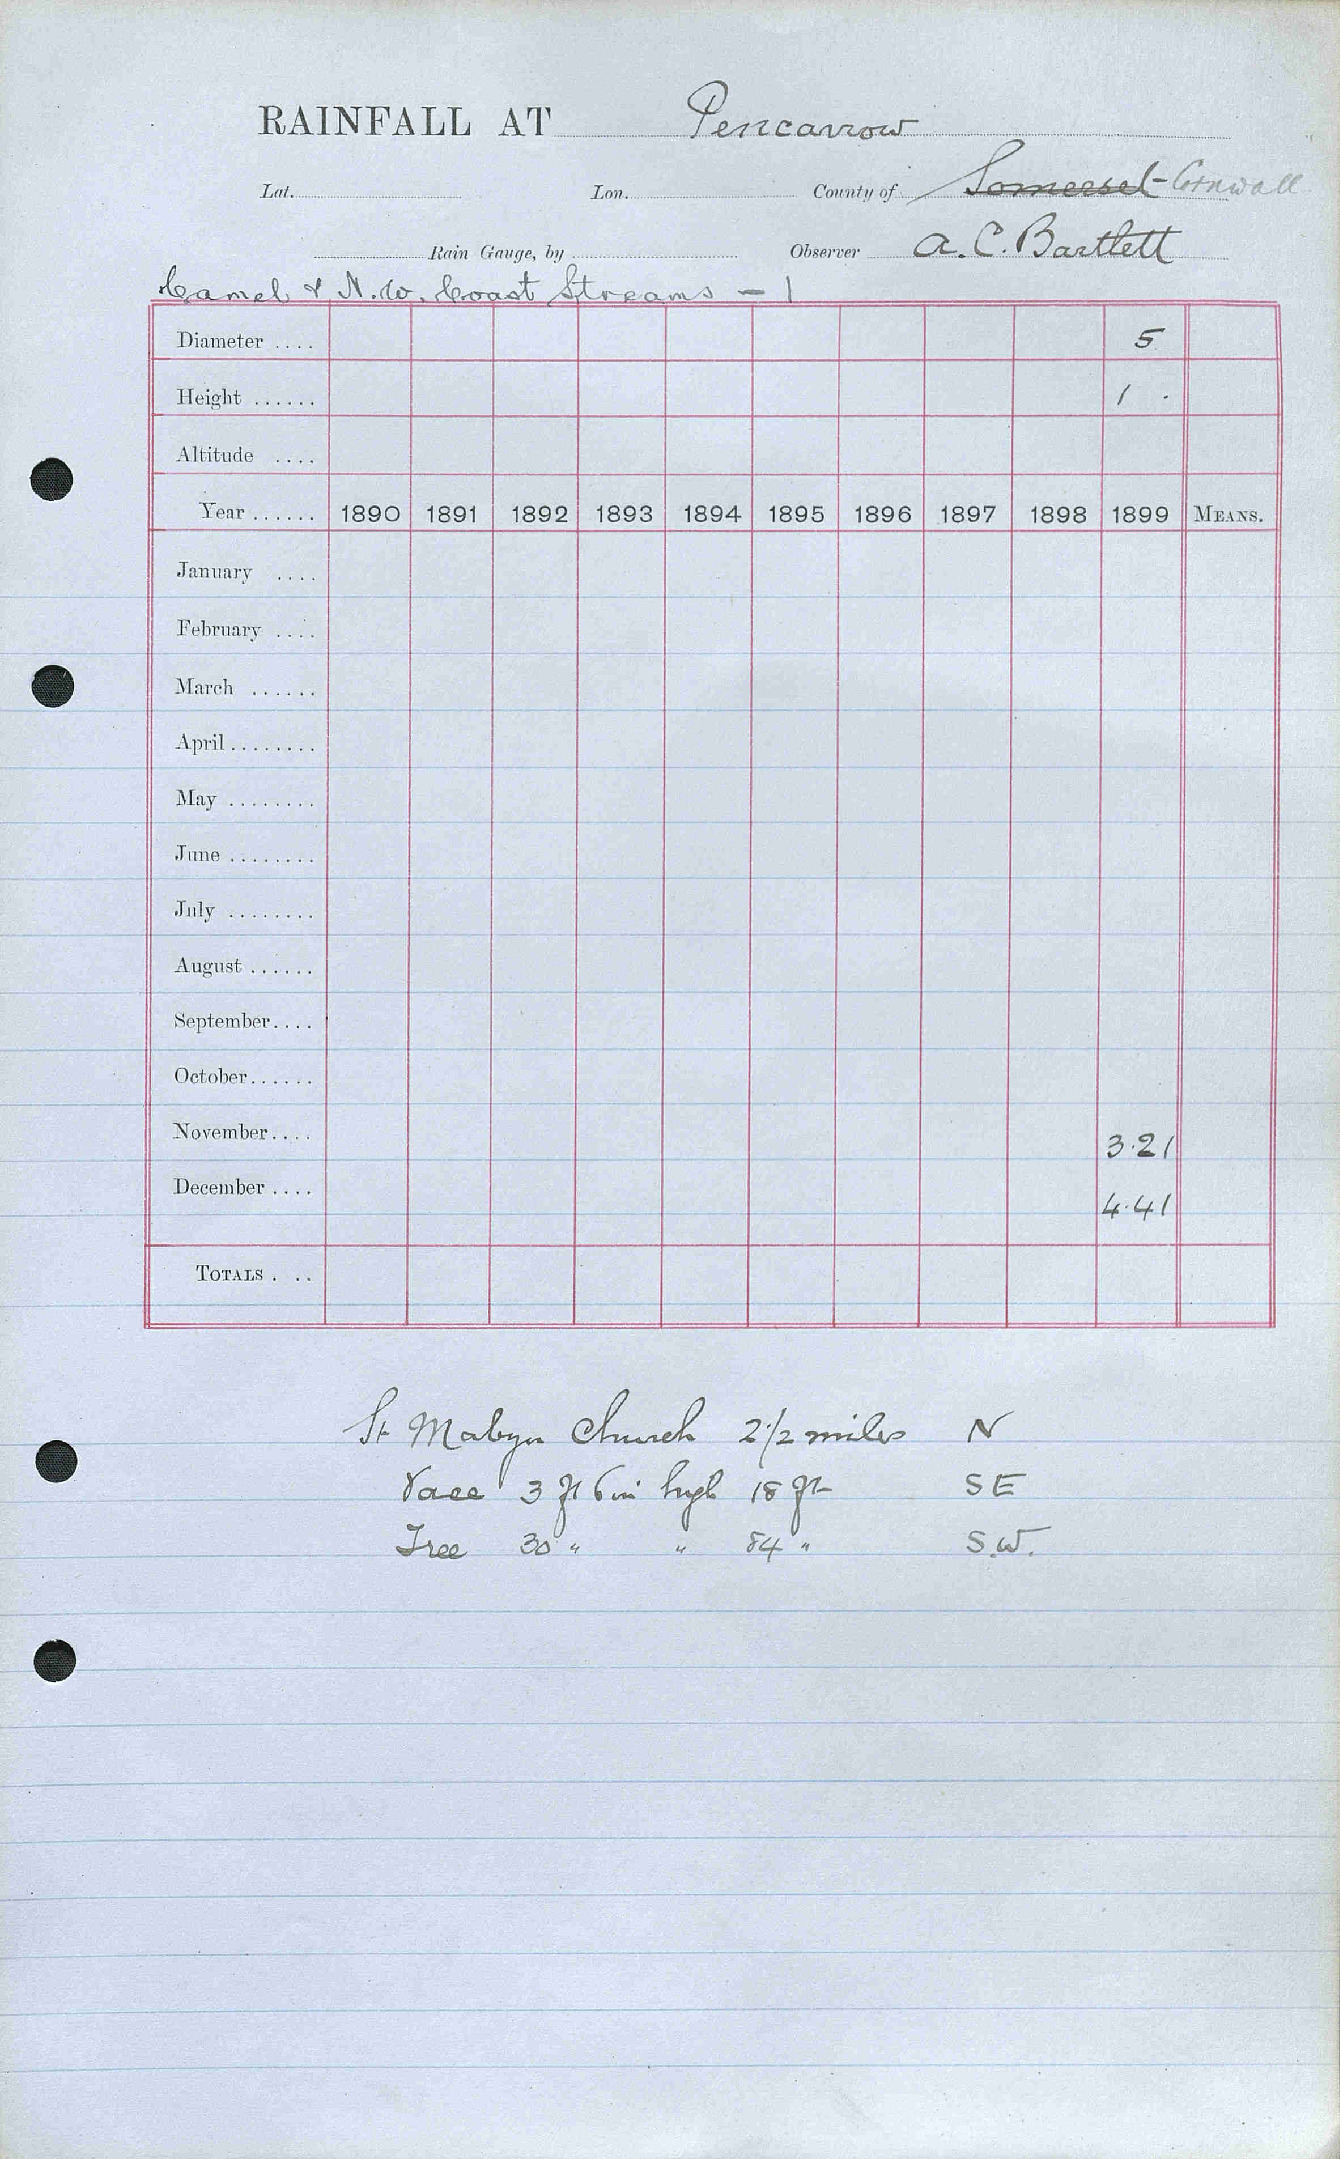 RAINFALL AT Pencarrow
Lat. Lon. County of Somerset - Cornwall
Rain Gauge, by Observer A. C. Bartlett
Camel & N.W. Coast Streams - 1
Diameter .... 5
Height ...... 1 .
Altitude ....
Year ...... 1890 1891 1892 1893 1894 1895 1896 1897 1898 1899 MEANS.
January ....
February ....
March ......
April ........
May ........
June ........
July ........
August ......
September....
October......
November.... 3.21
December .... 4.41
TOTALS . ..
St Mabyn Church 2 1/2 miles N
3 ft 6 in high 18 ft SE
Tree 30 " " 84 " S.W.